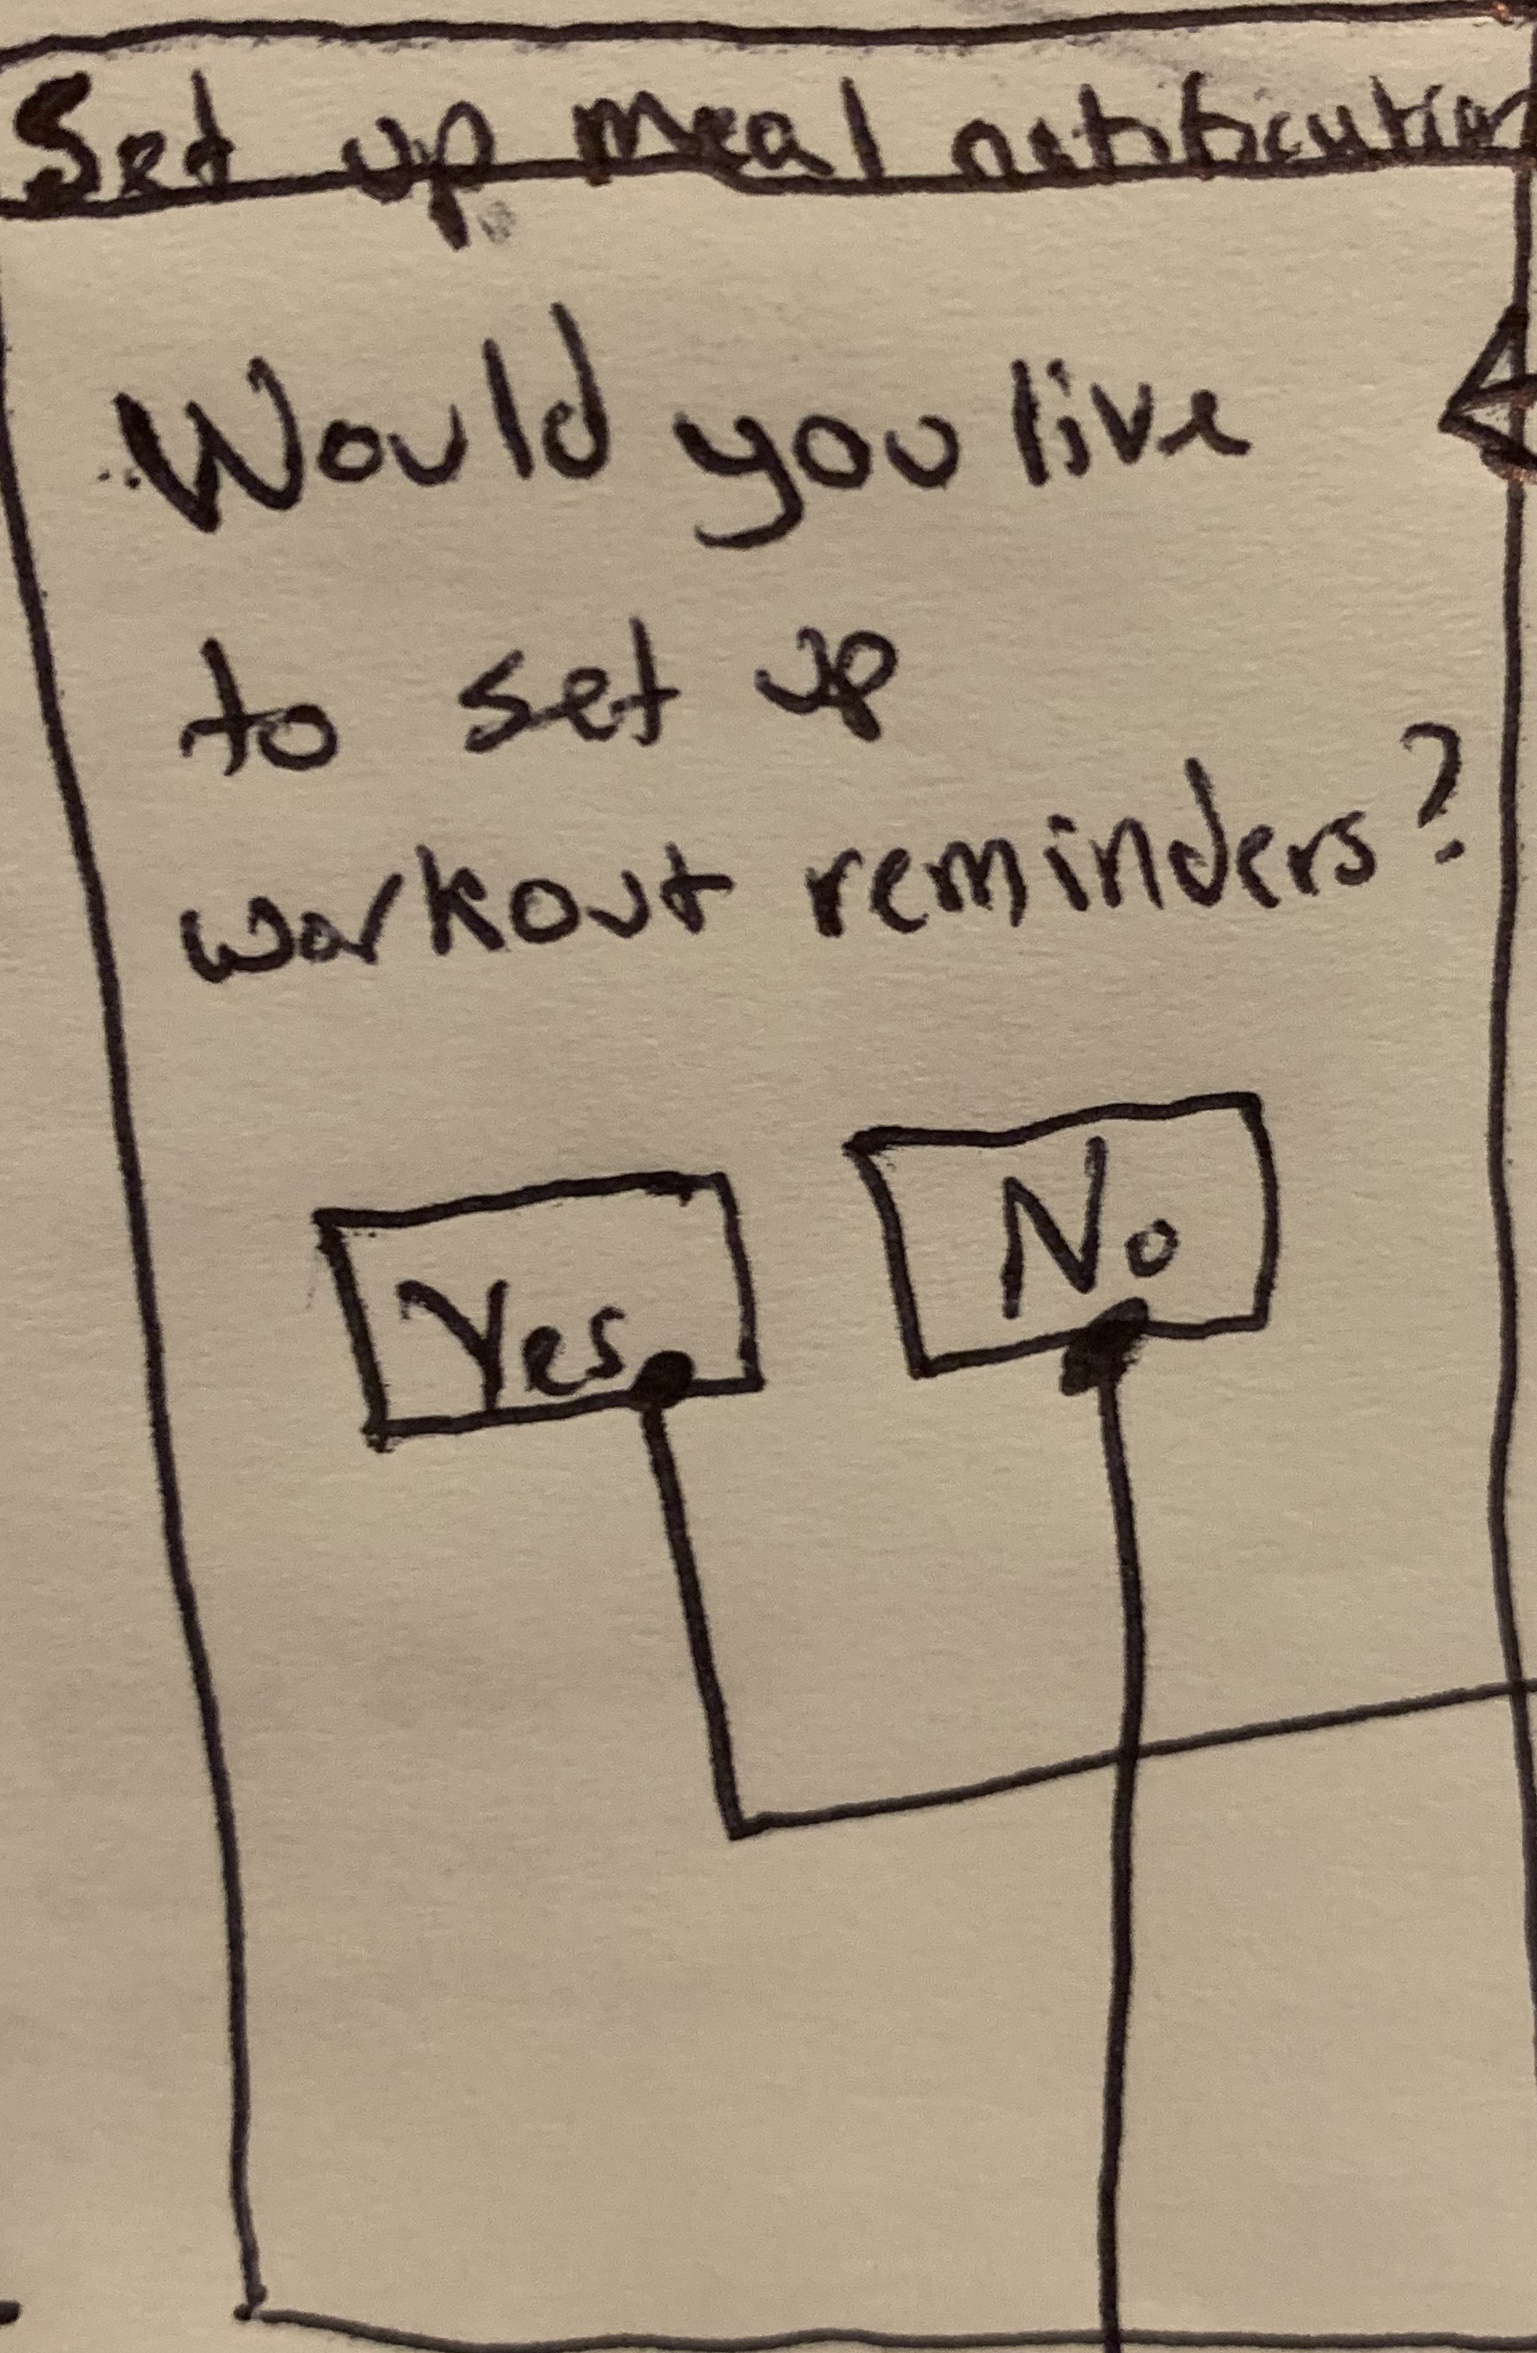 Set up meal notification
Would you live
to set up
workout reminders?
Yes
No